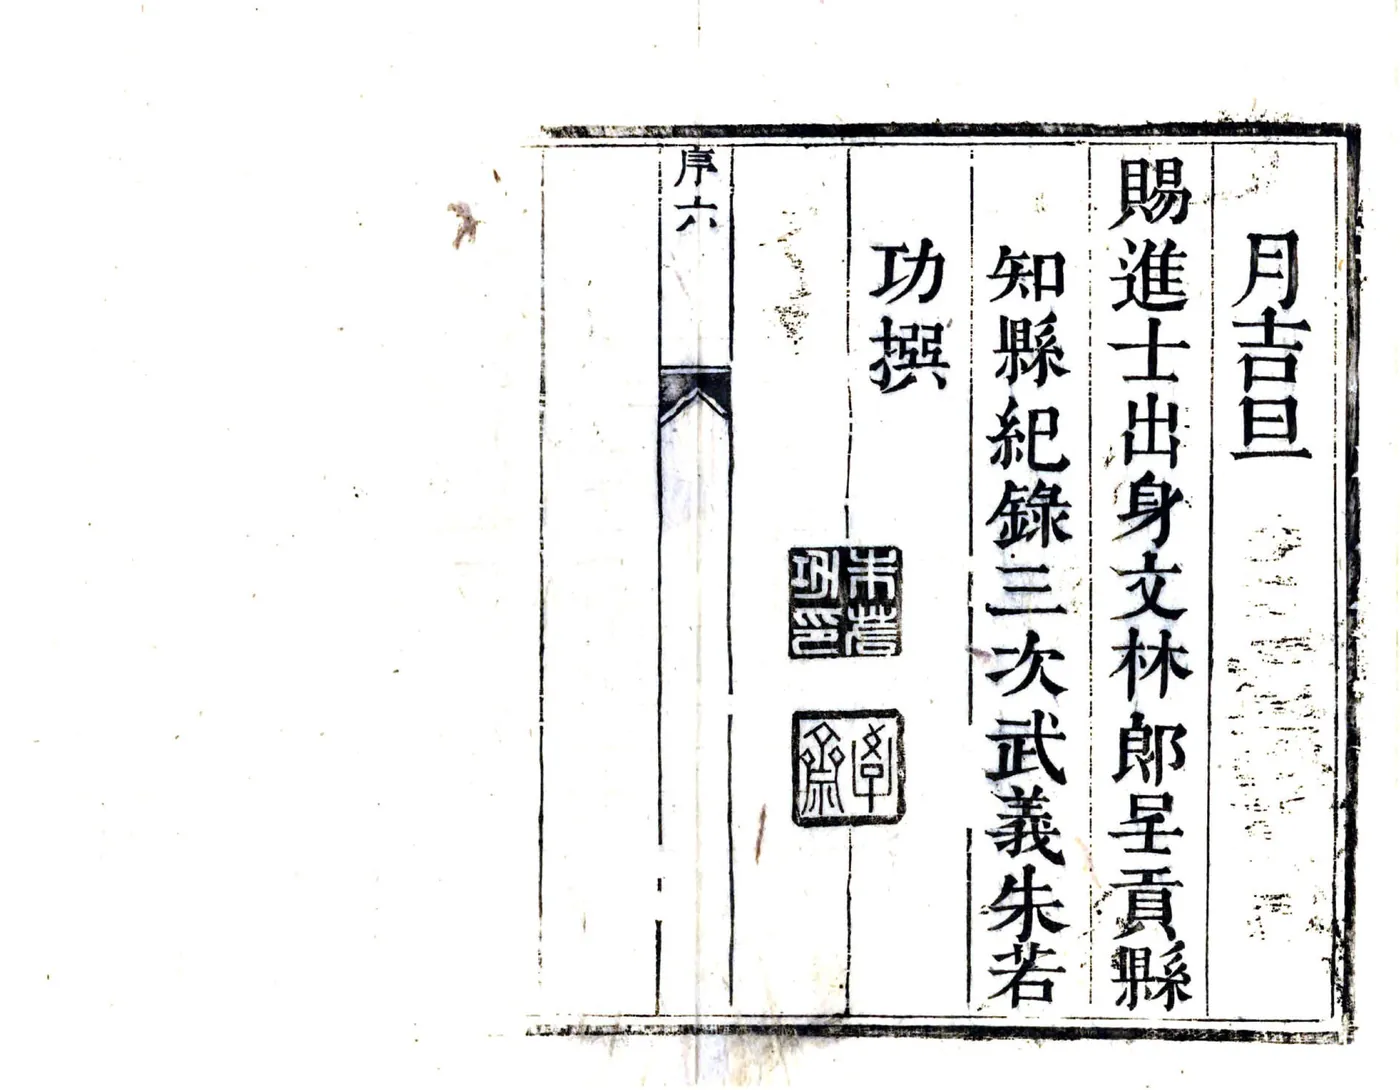 月吉旦
賜進士出身文林郎呈貢縣
知縣紀錄三次武義朱若
功撰
朱若
功印
學齋
序六